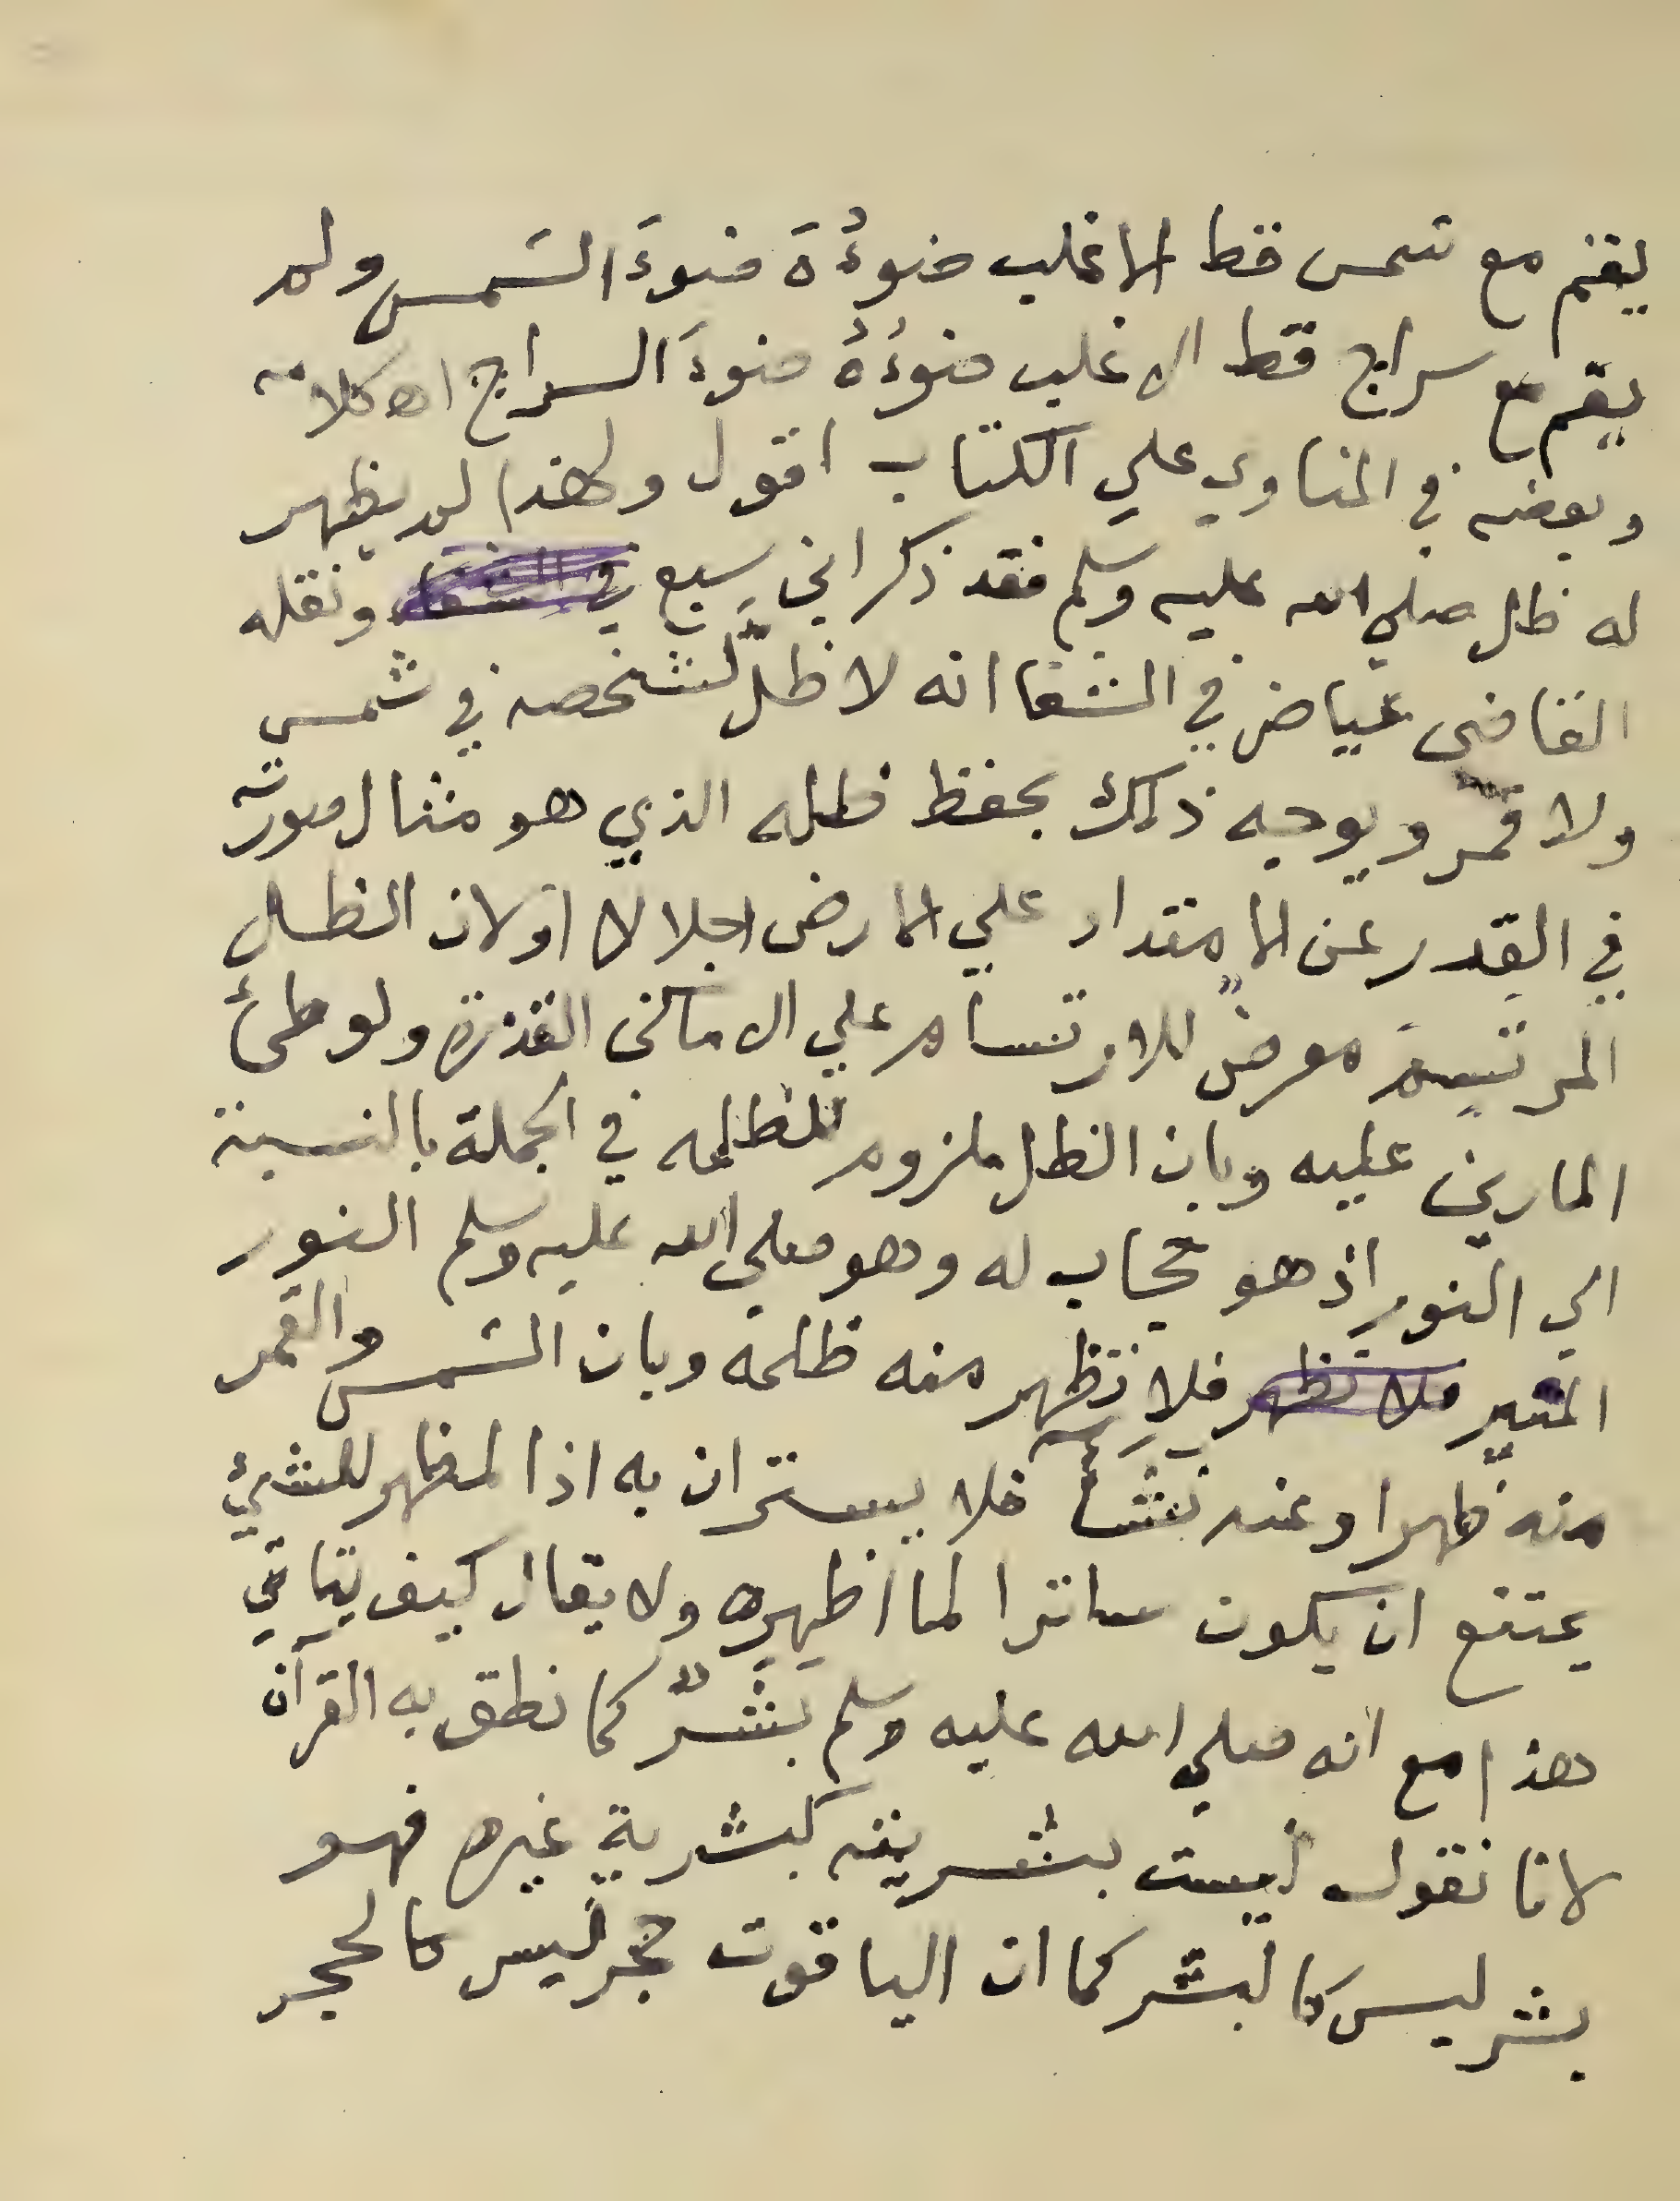 يقم مع شمس قط الا غلب ضوءُهَ ضوءَ الشمس ولم
يقم مع سراج قط الا غلب ضوءُهُ ضوءَ السراج اه كلامه
وبعضه في المناوي علي الكتاب اقول ولهذا لم يظهر
له ظل صلي الله عليه وسلم فقد ذكر ابن سبع في الشفاء ونقله
القاضى عياض في الشفا انه لا ظلَّ لشخصه في شمس
ولا قمر ويوجه ذلك بحفظ ظله الذي هو مثال صورته
في القدر عن الامتداد علي الارض اجلالا اولان الظل
المرتسمَ معرضٌ للارتسام علي الاماكن القذرة ولوطئ
المارين عليه وبان الظل ملزوم للظلمه في الجملة بالنسبة
الي النور اذ هو حجاب له وهو صلي الله عليه وسلم النور
المنير فلا تظهر فلا تظهر منه ظلمه وبان الشمس والقمر
منه ظهرا وعنه نشأ فلا يستران به اذ المظهر للشيئ
يمتنع ان يكون ساترا لما اظهره ولا يقال كيف يتاتي
هذا مع انه صلي الله عليه وسلم بَشَرٌ كما نطق به القرآن
لانا نقول ليست بشريته كبشرية غيره فهو
بشر ليس كالبشر كما ان الياقوت حجر ليس كالحجر